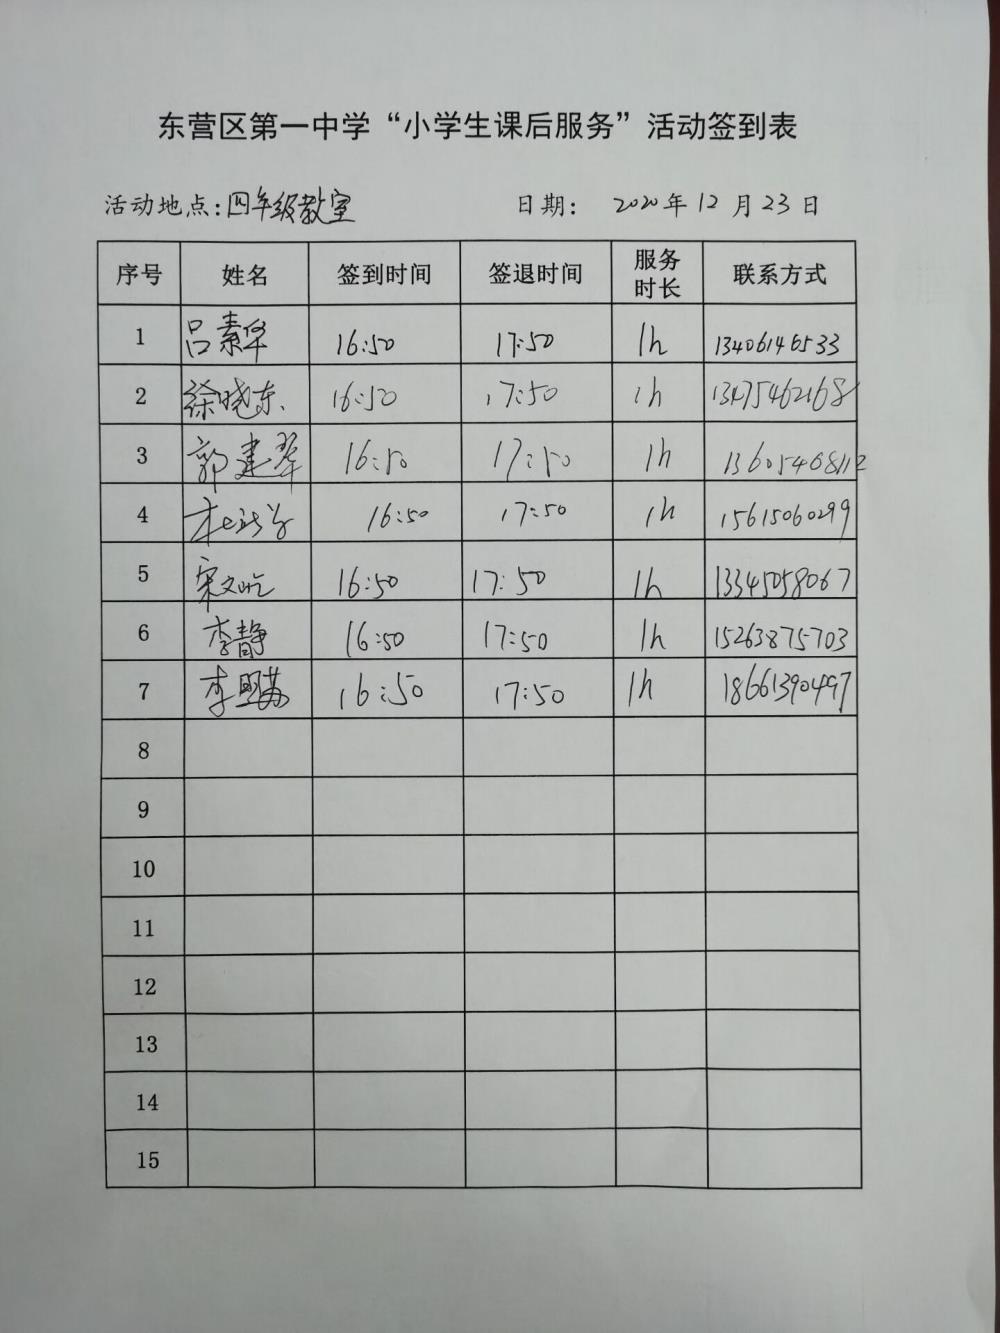 东营区第一中学“小学生课后服务”活动签到表
活动地点:四年级教室 日期: 2020年12月23日
序号 姓名 签到时间 签退时间 服务时长 联系方式
1 吕素华 16:50 17:50 1h 13406146533
2 徐晓东 16:50 17:50 1h 13475462168
3 郭建翠 16:50 17:50 1h 13605468112
4 16:50 17:50 1h 15615060299
5 宋文屹 16:50 17:50 1h 13345058067
6 李静 16:50 17:50 1h 15263875703
7 李 16:50 17:50 1h 18661390497
8
9
10
11
12
13
14
15